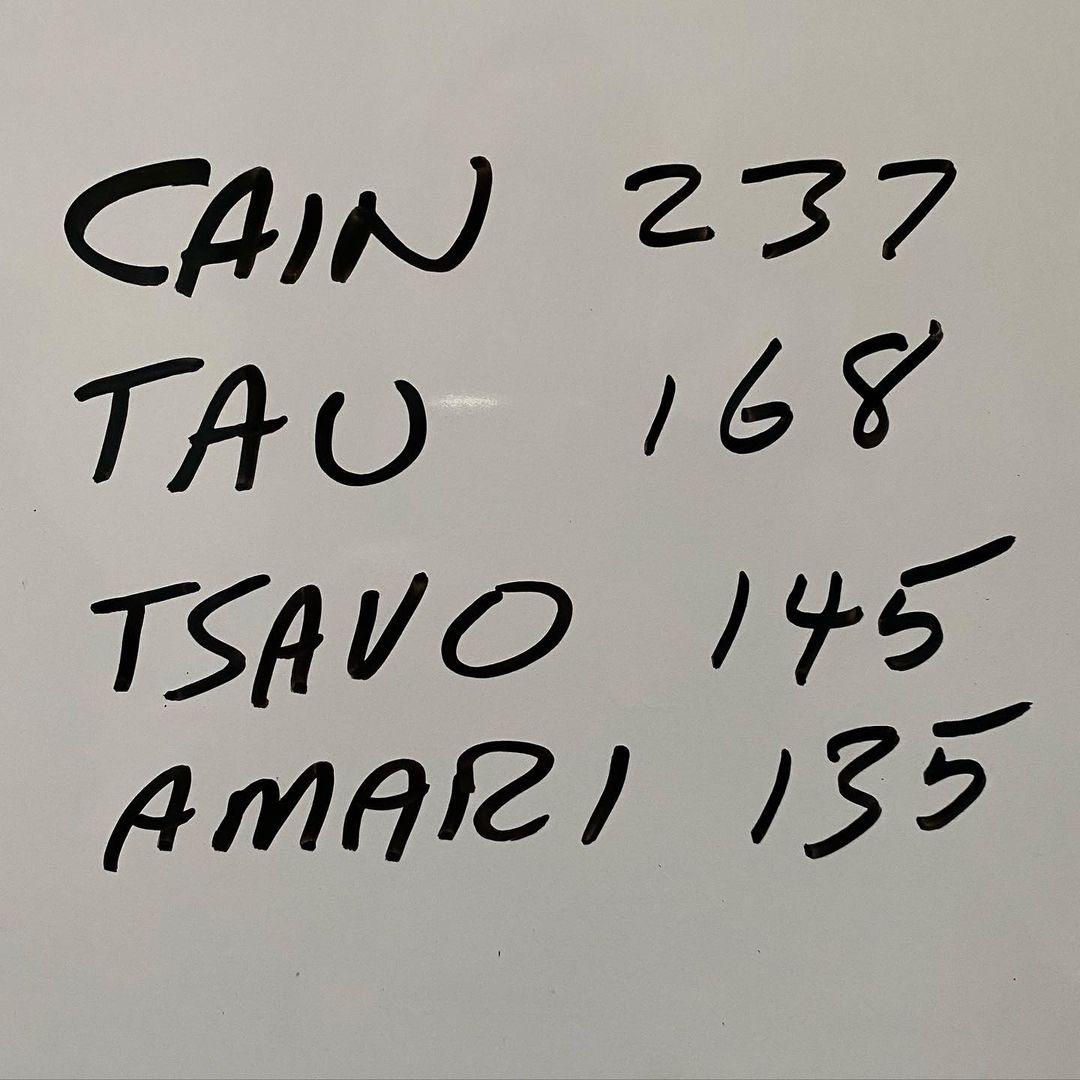 CAIN 237
TAU 168
TSAVO 145
AMARI 135